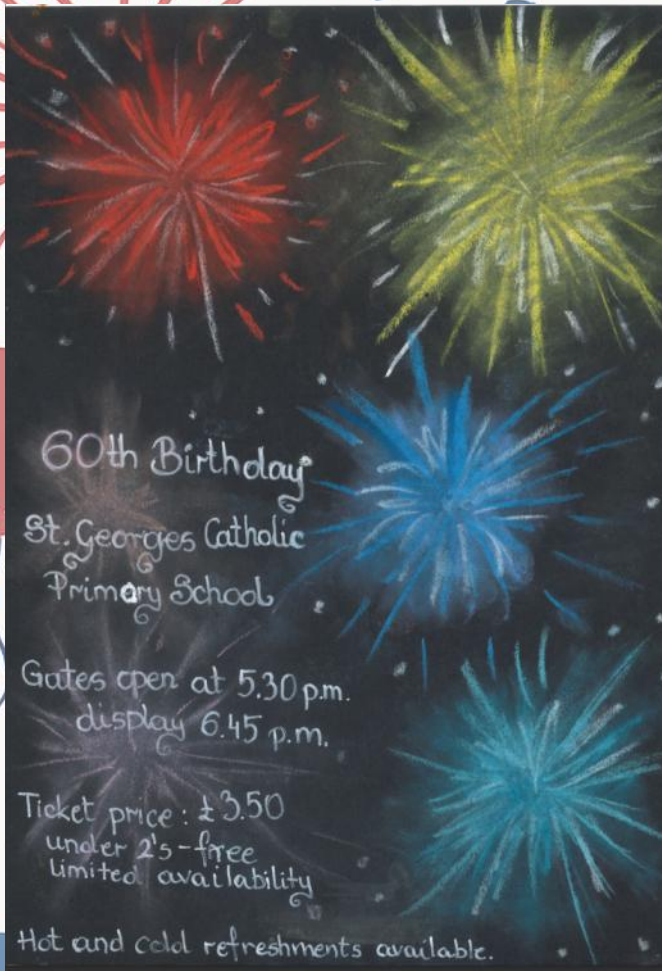 60th Birthday
St. Georges Catholic
Primary School
Gates open at 5.30 p.m.
display 6.45 p.m.
Ticket price : £3.50
under 2's - free
limited availability
Hot and cold refreshments available.